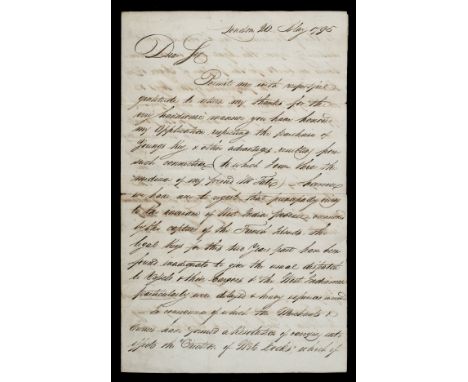 London 20 May 1795
Dear Sir
Permit me with respectful
gratitude to return my thanks for the
very handsome manner you have honour'd
my Application respecting the purchase of
Youngs Key & other advantages resulting from
such connection (to which I owe there the
mediation of my friend Mr Tate)
we have are to regrets that principally owing
to the accession of West India
by the capture of the French Islands. The
legal Keys for this two Year past have been
found inadequate to give the usual dispatch
to Vessels & their Cargoes & the West Indiamen
particularly are delayed & heavy expences
In consequence of which the Merchants &
Owners have formed a Resolution of carrying into
effect the Erection of Wet Docks which if